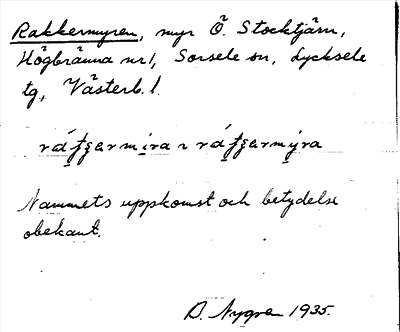 Rakkermyren, myr Ö. Stocktjärn,
Högbränna nr 1, Sorsele sn, Lycksele
tg, Västerb. l.
Nammets uppkomst och betydelse
obekant.
D. Nygren 1935.